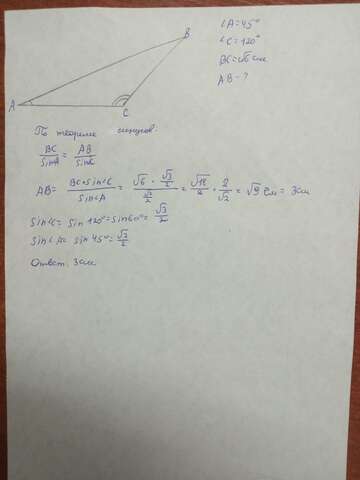 B
A
C
∠A=45°
∠C=120°
BC=√6 см
AB-?
По теореме синусов:
BC/SinA = AB/SinC
AB= BC*Sin∠C/Sin∠A = (√6 · √3/2)/(√2/2) = √18/2 · 2/√2 = √9 см = 3см
Sin∠C= Sin 120°=Sin60°= √3/2
Sin∠A= Sin 45°=√2/2
Ответ: 3см